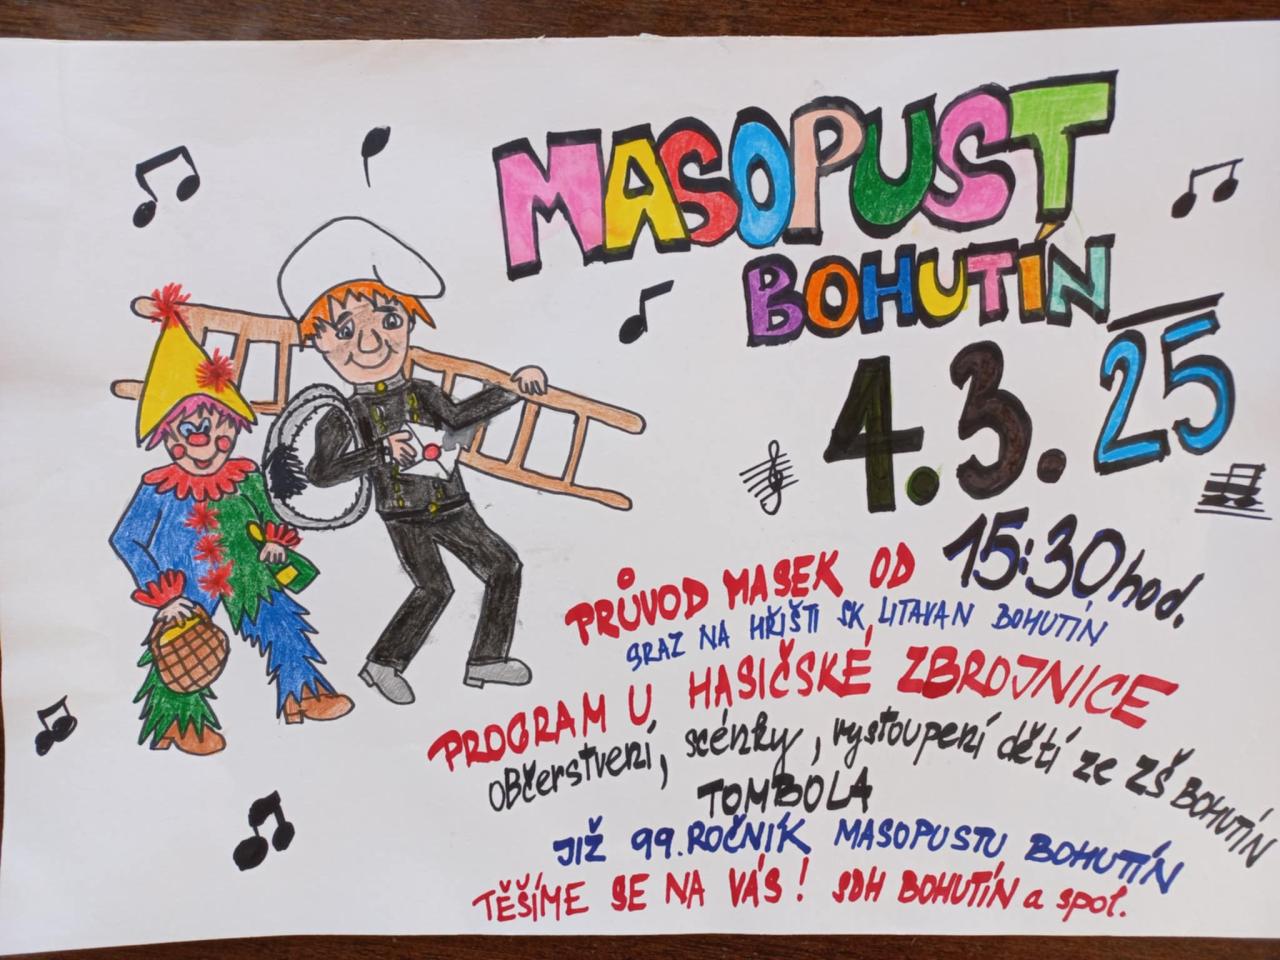 MASOPUST
BOHUTÍN
4.3.25
PRŮVOD MASEK OD 15:30 hod.
SRAZ NA HŘIŠTI SK LITAVAN BOHUTÍN
PROGRAM U HASIČSKÉ ZBROJNICE
OBČerstvení, scénky, vystoupení dětí ze ZŠ BOHUTÍN
TOMBOLA
JIŽ 99. ROČNÍK MASOPUSTU BOHUTÍN
TĚŠÍME SE NA VÁS! SDH BOHUTÍN a spol.